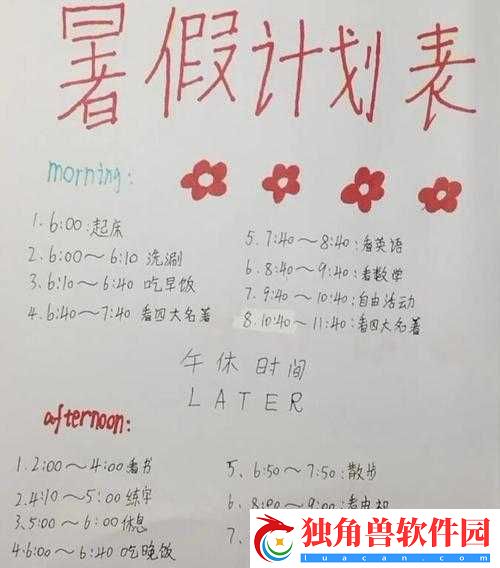 暑假计划表
morning:
1.6:00:起床
2.6:00～6:10 洗涮
3.6:10～6:40 吃早饭
4.6:40～7:40 看四大名著
5.7:40～8:40:看英语
6.8:40～9:40:看数学
7.9:40～10:40:自由活动
8.10:40～11:40:看四大名著
午休时间
LATER
afternoon:
1.2:00～4:00看书
2.4:10～5:00练字
3.5:00～6:00休息
4.6:00～6:40吃晚饭
5、6:50～7:50:散步
6、8:00～9:00:看
7、
独角兽软件园
luacan.com